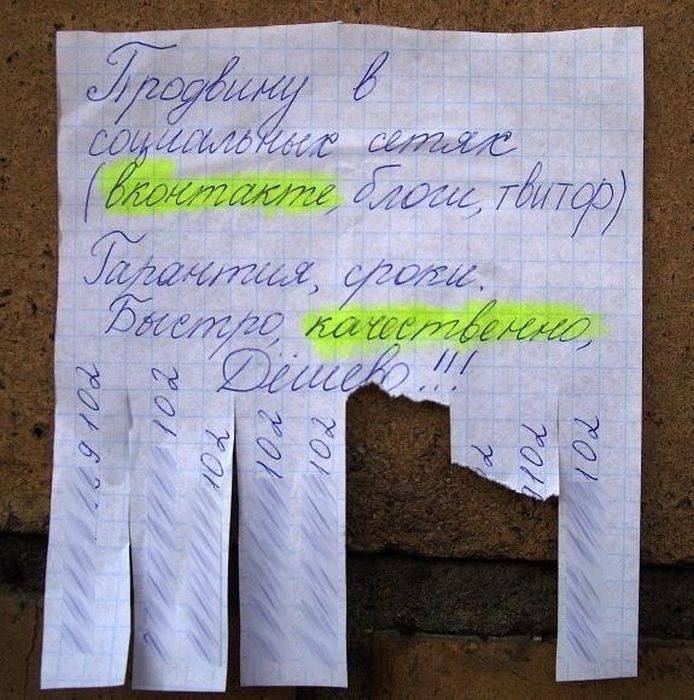 Продвину в
социальных сетях
(вконтакте, блоги, твитор)
Гарантия, сроки.
Быстро, качественно,
Дёшево!!!
9102
102
102
102
102
102
102